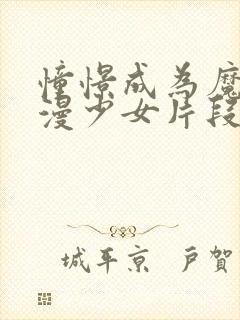 憧憬成為魔
漫少女片段
城平京 戶賀